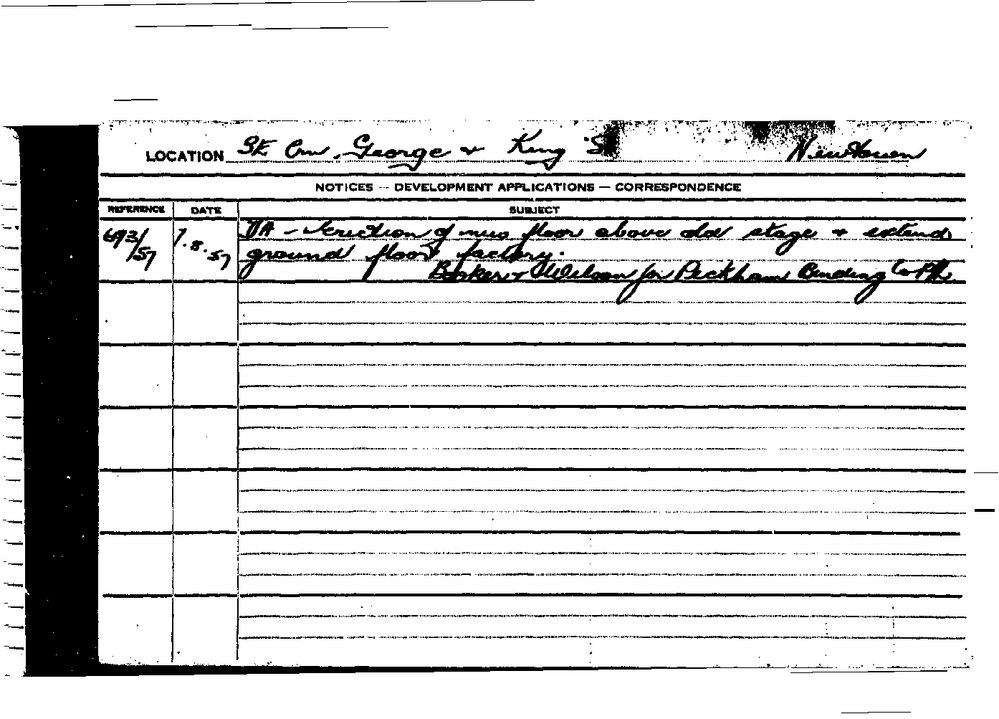 LOCATION SE Cnr, George & King S
NOTICES -- DEVELOPMENT APPLICATIONS — CORRESPONDENCE
REFERENCE DATE SUBJECT
693/57 7.8.57 DA - Erection of mess floor above old stage & extend
ground floor factory.
Booker & Wilson for Peckham Binding Co P/L